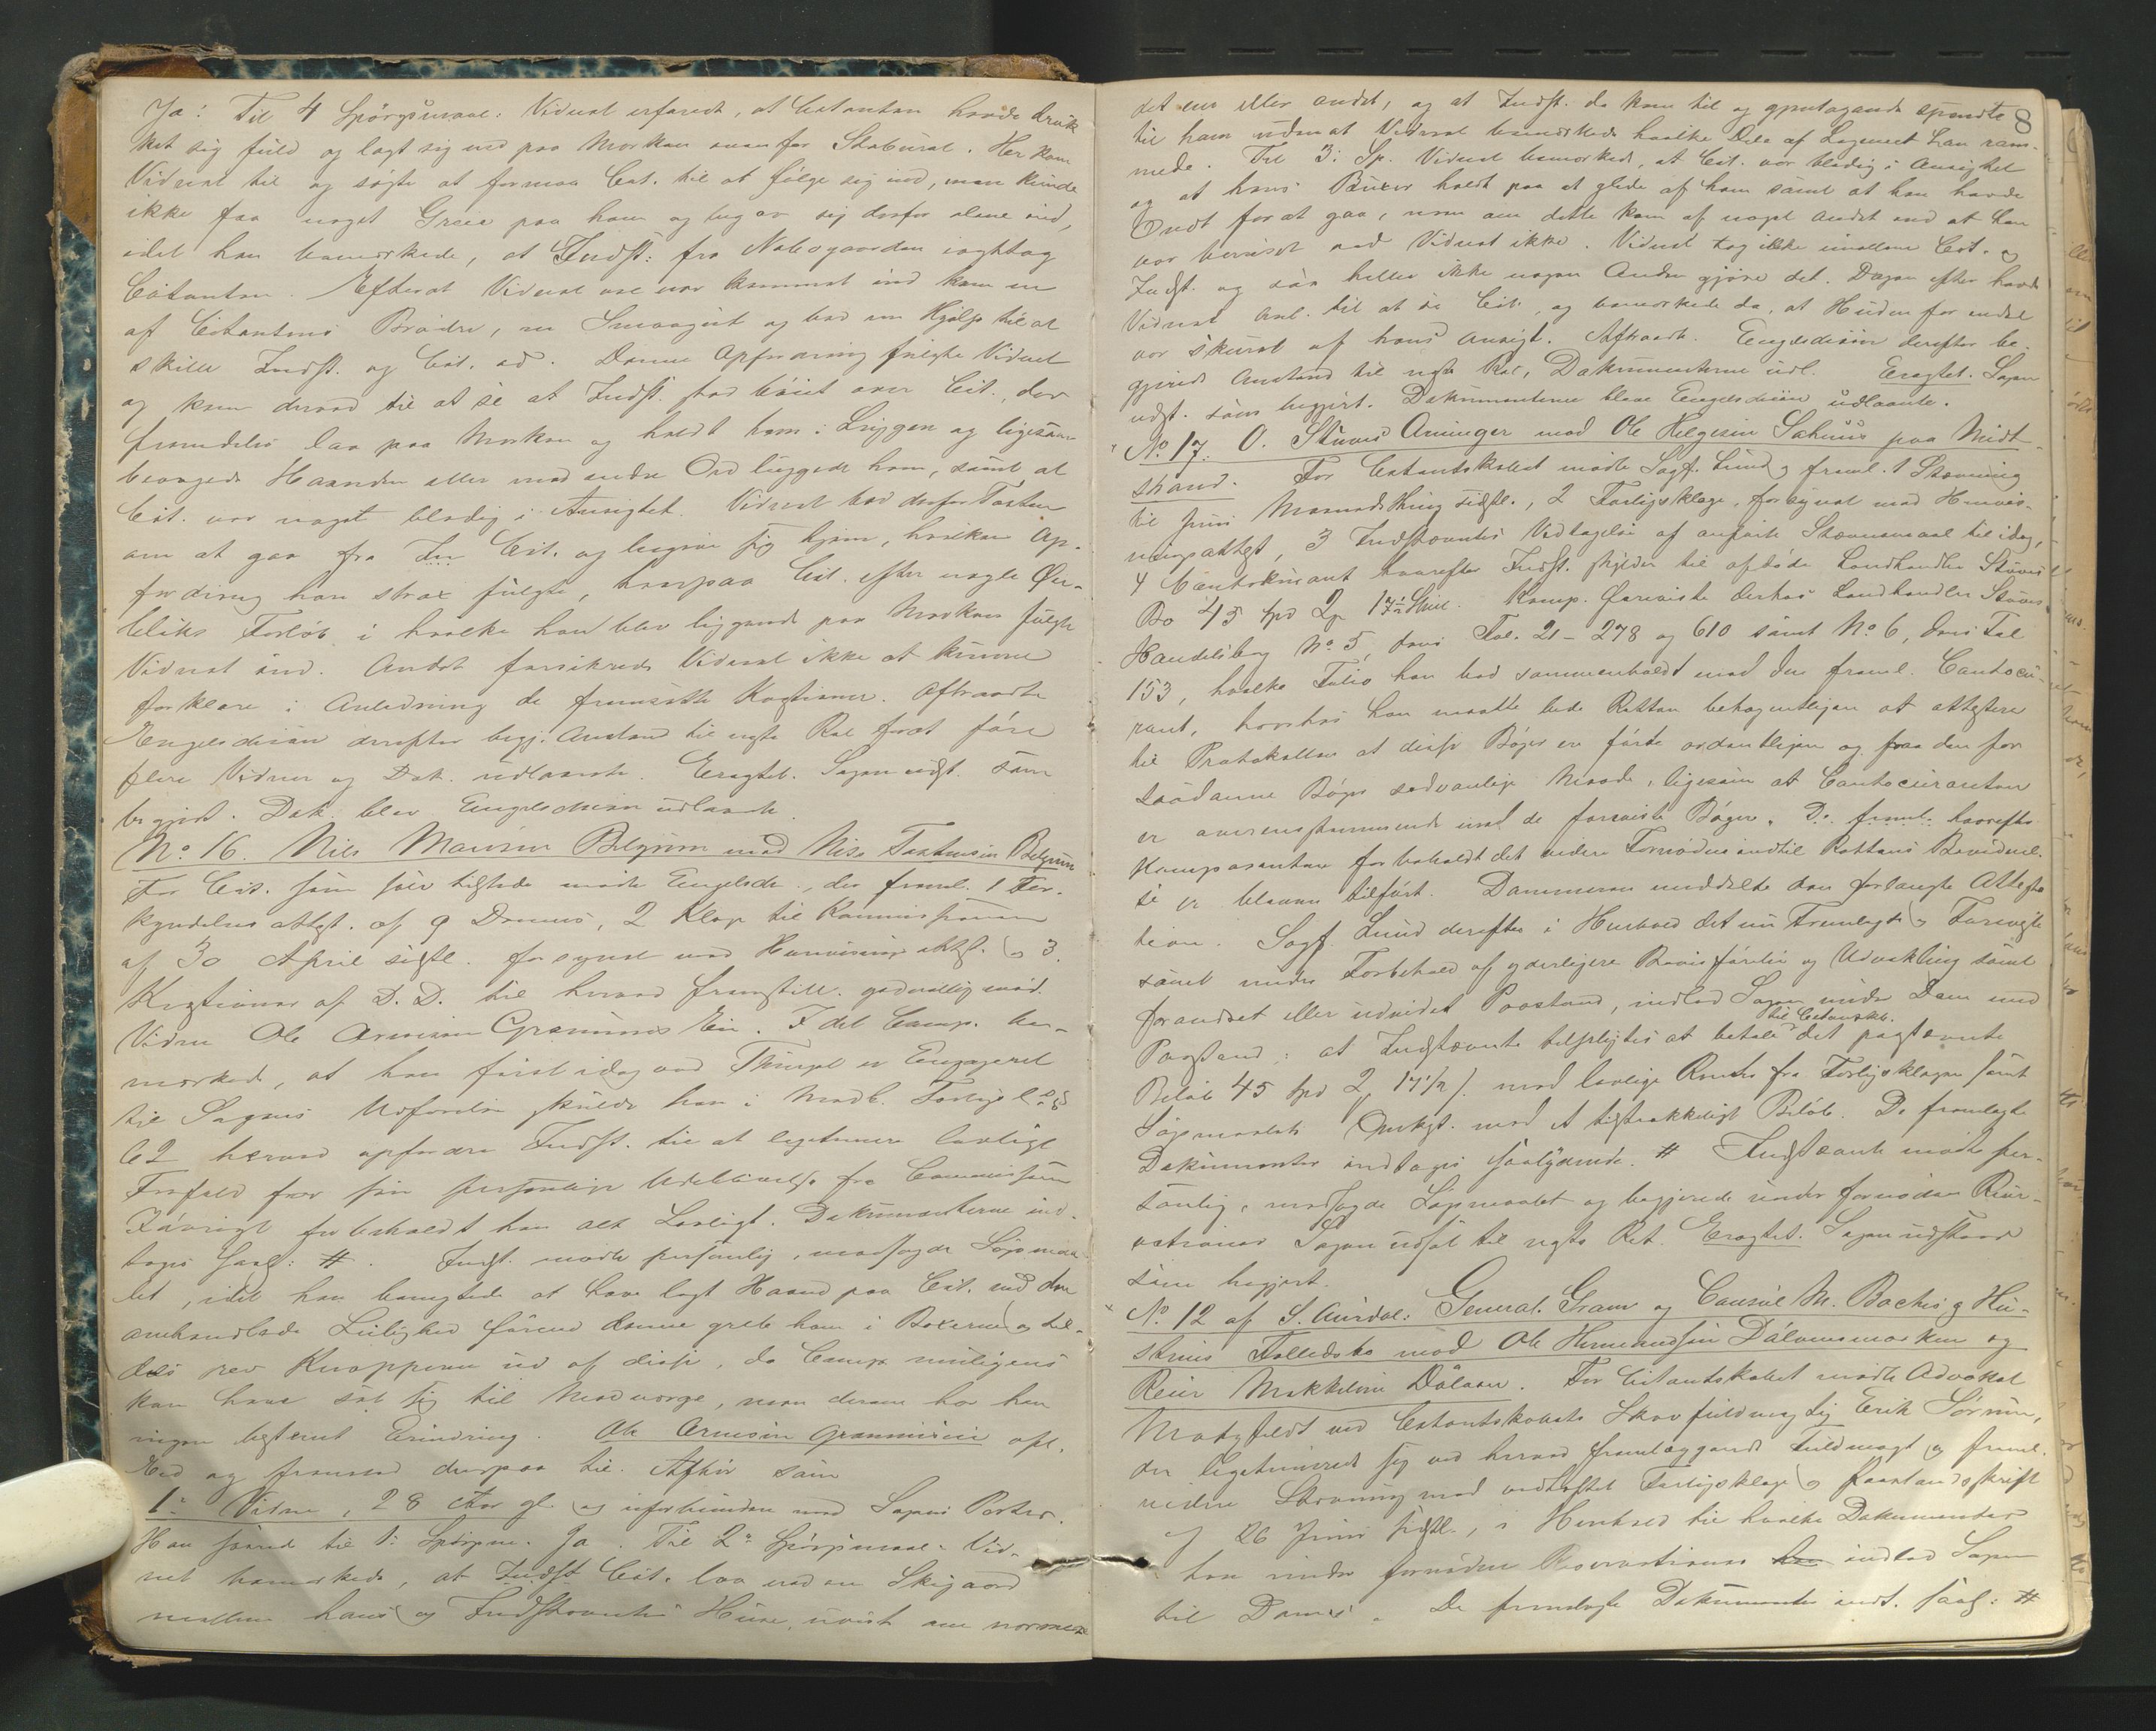 Ja: Til 4 Spörgsmaal: Vidnet erfarede, at Citanten havde druk
ket sig fuld og lagt sig ned paa Marken ovenfor Staburet. Her kom
Vidnet til og søgte at formaa Cit. til at fölge sig ind, men kunde
ikke faa noget Greie paa ham og begav sig derfor alene ind,
idet han bemærkede, at Indst: fra Nabogaarden iagttog
Citanten. Efterat Vidnet var kommet ind kom en
af Citantens Brödre, en Smaagut og bad om Hjælp til at
skille Indst. og Cit. ad. Denne Opfordring fulgte Vidnet
og kom derved til at se at Indst. stod böiet over Cit., der
fremdeles laa paa Marken og holdt ham i Luggen og ligesom
bevægede Haanden eller med andre Ord luggede ham, samt at
Cit. var noget blodig i Ansigtet. Vidnet bad derfor Torsten
om at gaa fra Cit. og begive sig hjem, hvilken Op-
fordring han strax fulgte, hvorpaa Cit. efter nogle Øie-
bliks Forlöb i hvilke han blev liggende paa Marken fulgte
Vidnet ind. Andet forsikrede Vidnet ikke at kunne
forklare i Anledning de fremsatte Kvæstioner. Aftraadte
Engelschiøn derefter begj. Anstand til næste Ret forat före
flere Vidner og Dok. udlaante. Eragtet. Sagen uds. som
begjært. Dok. blev Engelschiøn udlaante.
No 16. Nils Maurin Belgum mod Nils Torstensen Belgum
For Cit. som selv tilstede mödte Engelsch., der freml. 1 For-
kyndelsesattest. af 9 Dennes, 2 Klage til Kommissionen
af 30 April sidstl. forsynet med Henvisnings attst. og 3.
Kvæstioner af D. D. til hvorved fremstill. godvillig möd.
Vidne Ole Arnesen Grønmines Eie. Idet Comp. be-
mærkede, at han först idag ved Thinget er Engageret
til Sagens Udförelse skulde han i Medh. Forligsl.
62 herved opfordre Indst. til at legitimere lovligt
Forfald for sin personlige Udeblivelse fra Commissionen
Iövrigt forbeholdt han alt Lovligt. Dokumenterne ind-
tages saal: #. Indst. mödte personlig, modsagde Sögsmaa-
let, idet han benegtede at have lagt Haand paa Cit. ved den
omhandlede Leilighed förend denne greb ham i Buxerne og til-
dels rev Knapperne ud af disse, da Comp. muligens
kan have sat sig til Modværge, men derom har han
ingen bestemt Erindring. Ole Arnesen Grønmineseie opl.
Ed og fremstod derpaa til Afhör som
1: Vidne, 28 Aar gl. og uforbunden med Sagens Parter.
Han svared til 1: Spörgsm. Ja. Til 2: Spörgsmaal: Vid-
net bemærkede, at Indst Cit. laa ved en Skigaard
mellem hans og Indstevntes Huse, uvist om nærmere
8
det ene eller andet, og at Indst. da kom til og gjentagende spændte
til ham uden at Vidnet bemærkede hvilke Dele af Legemet han ram-
mede. Til 3: Sp. Vidnet bemærkede, at Cit. var blodig i Ansigtet
og at hans Buxer holdt paa at glide af ham samt at han havde
Ondt for at gaa, men om dette kom af noget andet end at han
var beruset ved Vidnet ikke. Vidnet tog ikke imellem Cit. og
Indst. og saa heller ikke nogen Anden gjöre det. Dagen efter havde
Vidnet Anl. til at se Cit. og bemærkede da, at Huden for endel
var skuret af hans Ansigt. Aftraadt. Engelschiøn derefter be-
gjærede Anstand til næste Ret, Dokumenterne udl. Eragtet. Sagen
udst. som begjært. Dokumenterne bleve Engelschiøn udlaante.
No 17. O. Stuves Arvinger mod Ole Helgesen Sahuus paa Midt-
strand. For Citantskabet mødte Sagf. Lund og freml. 1 Stevning
til Juni Maanedsthing sidstl., 2 Forligsklage, forsynet med Henvis-
ningsattest, 3 Indstævntes Vedtagelse af anförte Stævnemaal til idag,
4 Contokurant hvorefter Indst. skylder til afdöde Landhandler Stuves
Bo 45 Spd 2 17½ Skill. Komp. foreviste derhos Landhandler Stuves
Handelsbog No. 5, dens Fol. 21 - 278 og 610 samt No 6, dens Fol
153, hvilke Folio han bad sammenholdt med den freml. Contocu-
rant, hvorhos han maatte bede Retten behagentligen at attestere
til Protokollen at disse Bøger ere förte ordentligen og paa den for
saadanne Böger sædvanlige Maade, ligesom at Contocuranten
er overensstemmende med de foreviste Böger. Do. freml. hvorefter
Komparenten forbeholdt det videre Fornödne indtil Rettens Bevidnel-
se er bleven tilfört. Dommeren meddelte den forlangte Attesta-
tion. Sagf. Lund derefter i Henhold det nu Fremlagte og Foreviste
samt under Forbehold af yderligere Bevisförelse og Udvikling samt
forandret eller udvidet Paastand, indlod Sagen under Dom med
Paastand: at Indstævnte tilpligtes at betale til Citantskb. det paastævnte
Belöb 45 Spd 2 17½ s. med lovlige Renter fra Forligsklagen samt
Søgsmaalets Omkst. med et tilstrækkeligt Belöb. De fremlagte
Dokumenter indtages saalydende. # Indstævnte mödte per-
sonlig, modsagde Søgsmaalet og begjærede under fornöden Reser-
vationer Sagen udsat til næste Ret. Eragtet. Sagen udstaar
som begjært.
No 12 af S. Aurdal: General. Gram og Consul M. Backes og Hu-
struers Fælledsbo mod Ole Hermundsen Dålvensmarken og
Reier Mikkelsen Dålven. For Citantskabet mødte Advokat
Motzfeldt ved Citantskabets Skovfuldmægtig Erik Sörum,
der legitimered sig ved herved fremlæggende Fuldmagt og freml.
videre Stevning med vedhæftet Forligsklage og Paastandsskrift
af 26 Juni sidstl., i Henhold til hvilke Dokumenter
han under fornöden Reservationer indlod Sagen
til Doms. De fremlagte Dokumenter indt. saal: #